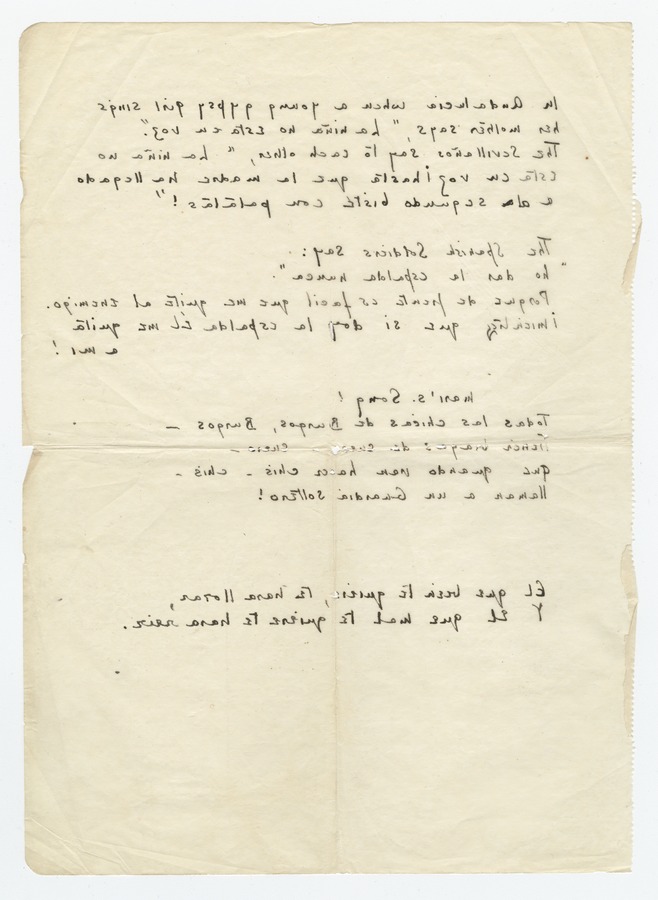 In Andalucia when a young gypsy girl sings
her mother says, "La niña no Està en voz".
The Sevillaños say to each other, "La niña no
Està en voz ¡hasta que la madre ha llegado
a da segundo bistè con patatas!"
The Spanish Soldiers Say:
"no dar la espalda nunca".
Porque de frente es facil que me quite al enemigo.
¡mientras que si doy la espalda El me quita
a mi!
Mari's. Song!
Todas las chicas de Burgos, Burgos —
Tienen bragas de cuero — cuero —
que quando van hacer chis — chis —
llaman a un Guardia Soltero!
El que bein te quiere, te hara llorar,
Y El que mal te quiere te hara reir.